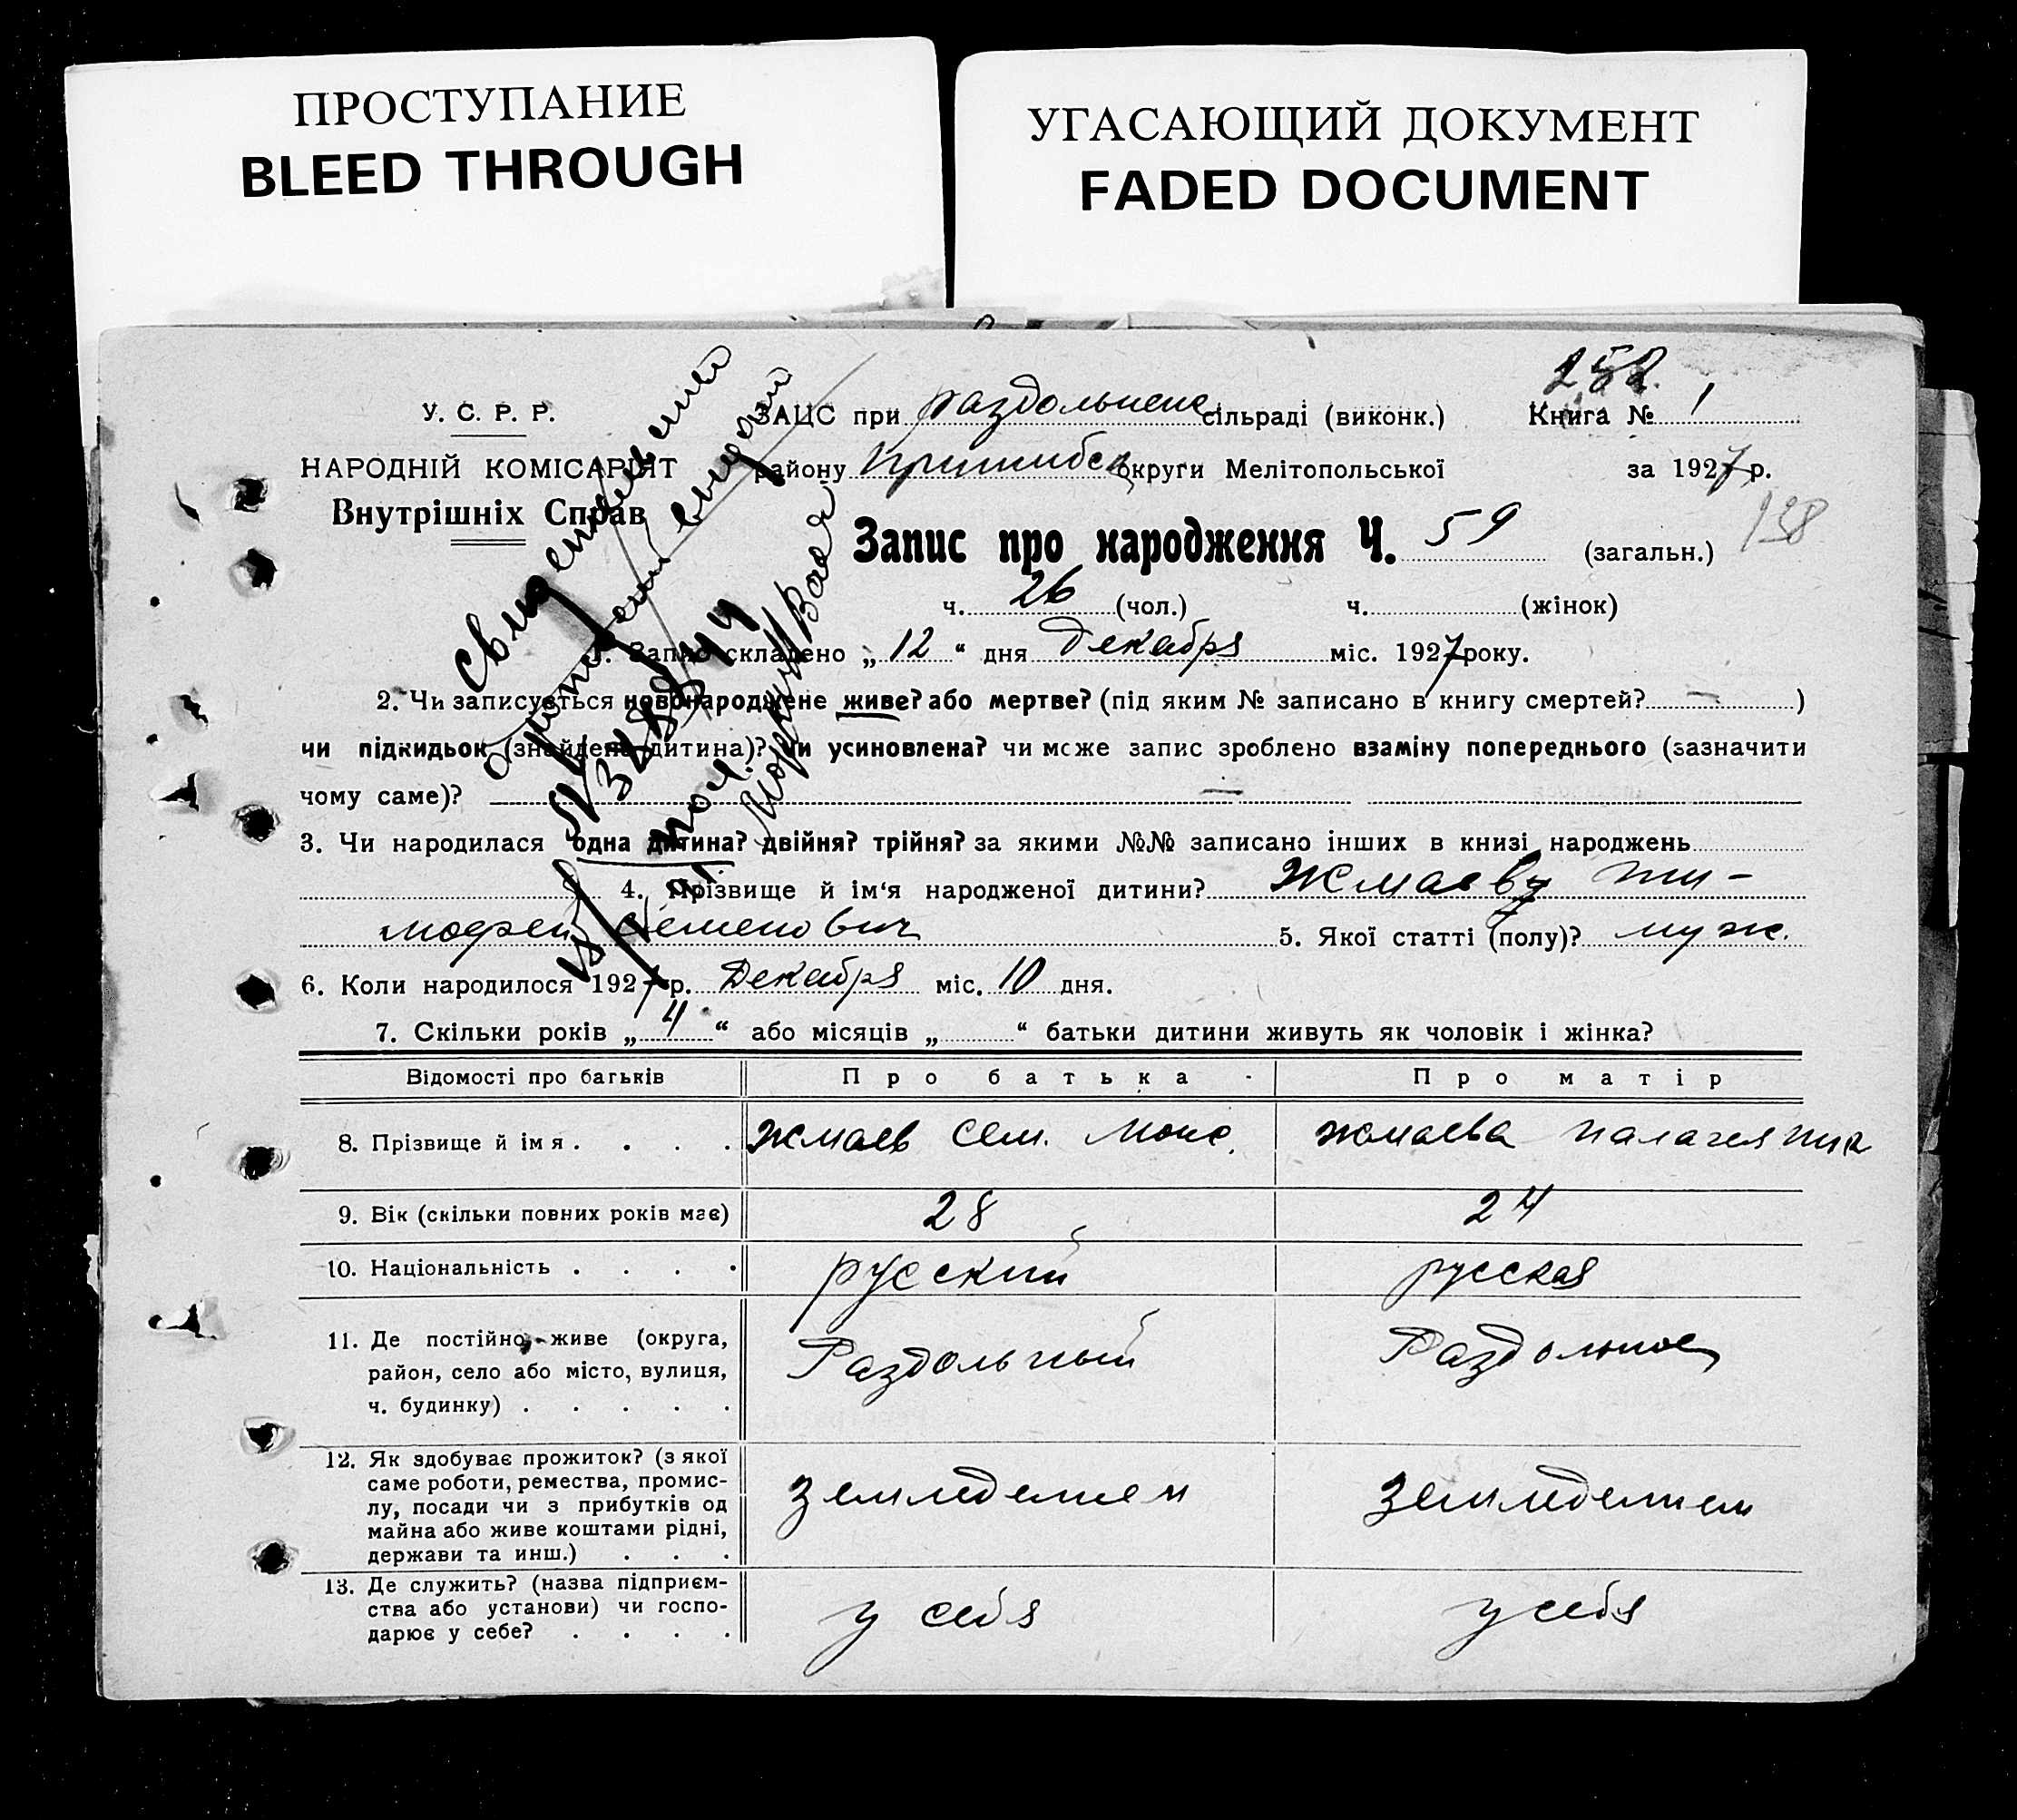 ПРОСТУПАНИЕ
BLEED THROUGH
УГАСАЮЩИЙ ДОКУМЕНТ
FADED DOCUMENT
252.
У. С. Р. Р.
НАРОДНІЙ КОМІСАРІЯТ
Внутрішніх Справ
ЗАЦС при Раздольненс сільраді (виконк.) Книга № 1
району Пришибск округи Мелітопольської за 1927 р.
138
Запис про народження Ч. 59 (загальн.)
ч. 26 (чол.) ч. (жінок)
1. Запис складено „ 12 “ дня Декабря міс. 1927 року.
2. Чи записується новонароджене живе? або мертве? (під яким № записано в книгу смертей? — )
чи підкидьок (знайдена дитина)? чи усиновлена? чи може запис зроблено взаміну попереднього (зазначити
чому саме)? —
3. Чи народилася одна дитина? двійня? трійня? за якими №№ записано інших в книзі народжень
4. Прізвище й ім‘я народженої дитини? Жмаеву Ти-
мофей Семенович 5. Якої статті (полу)? муж.
6. Коли народилося 1927 р. Декабря міс. 10 дня.
7. Скільки років „ 4 “ або місяців „ “ батьки дитини живуть як чоловік і жінка?
Відомості про батьків Про батька Про матір
8. Прізвище й імя Жмаев Сем. Жмаева Палагея
9. Вік (скільки повних років має) 28 24
10. Національність русский русская
11. Де постійно живе (округа,
район, село або місто, вулиця, Раздольный Раздольное
ч. будинку)
12. Як здобуває прожиток? (з якої
саме роботи, ремества, промис-
лу, посади чи з прибутків од земледелием земледелием
майна або живе коштами рідні,
держави та инш.)
13. Де служить? (назва підприєм-
ства або установи) чи госпо- у себя у себя
дарює у себе?